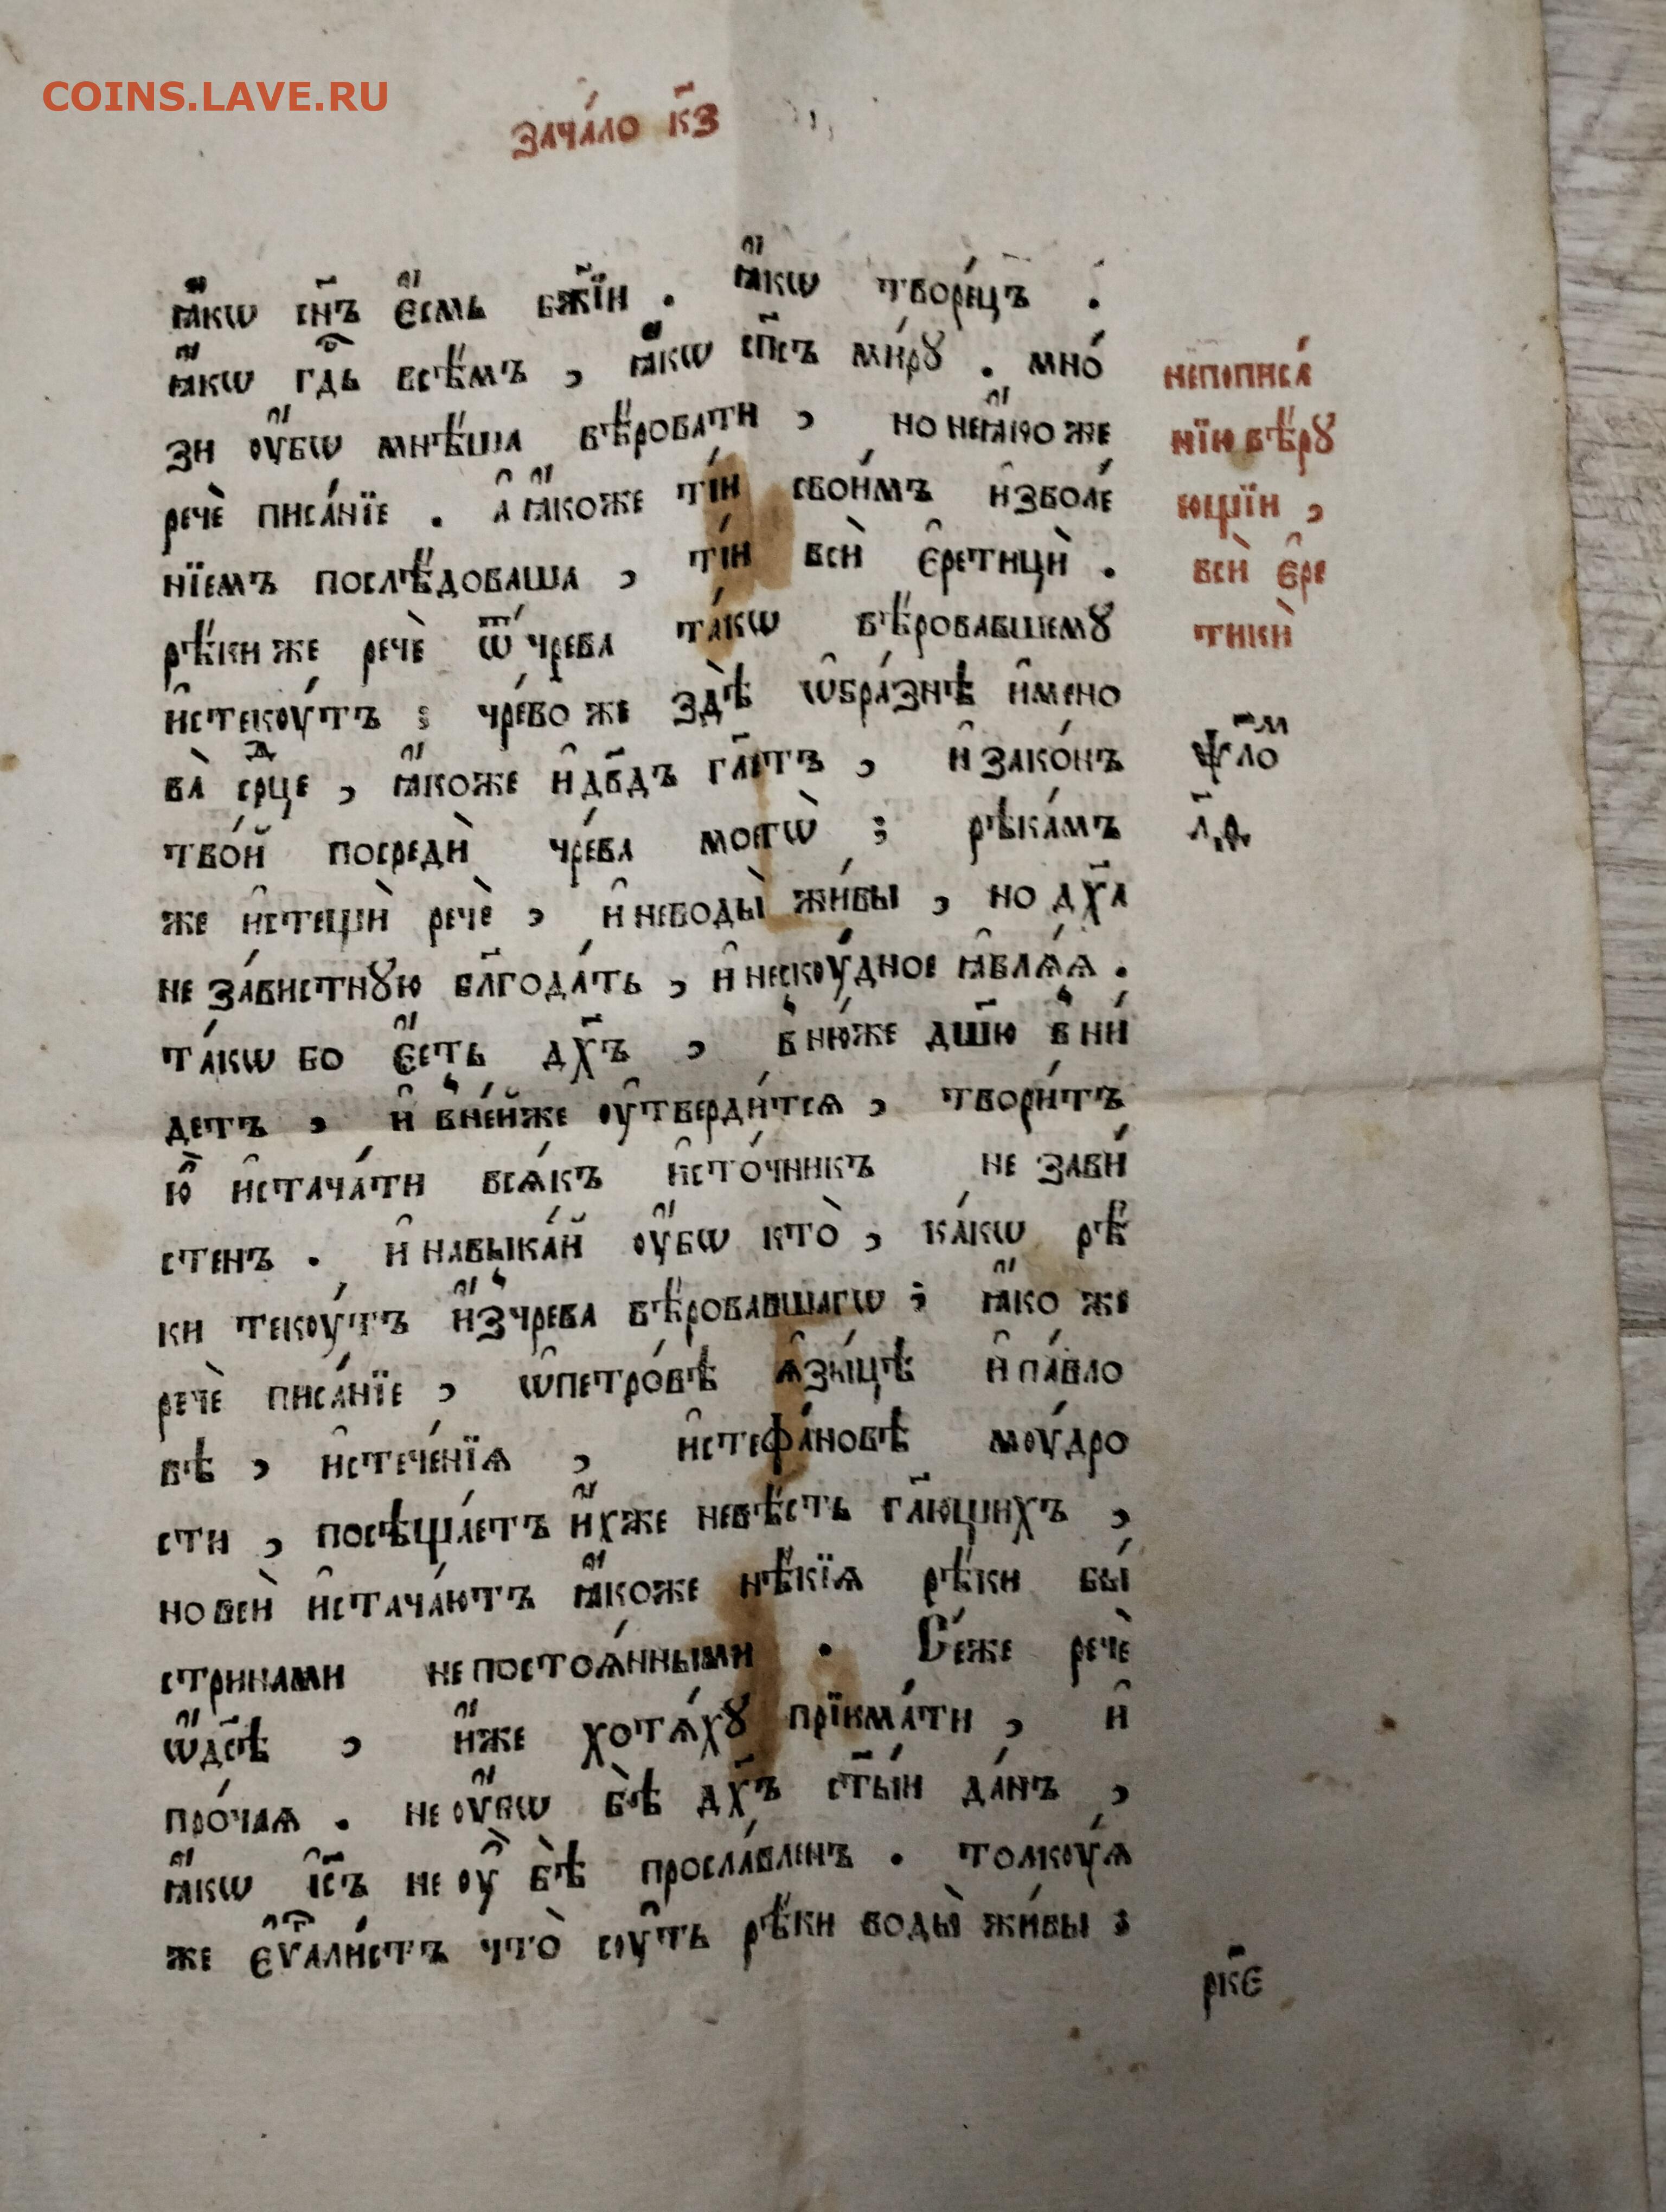 COINS.LAVE.RU
зача́ло к҃з
ꙗ҆́кѡ сн҃ъ є҆́смь бж҃їи . ꙗ҆́кѡ творе́цъ .
ꙗ҆́кѡ гдⷭ҇ь всѣ́мъ , ꙗ҆́кѡ сп҃съ ми́рꙋ . мно́
зи ᲂу҆́бѡ мнѣ́ша вѣ́ровати , но неꙗ҆́ко же
речѐ писа́нїе . а҆ ꙗ҆́коже ті́и свои́мъ и҆зволе́
нїемъ послѣ́доваша , ті́и всѝ є҆ретицѝ .
рѣ́ки же речѐ ѿ чре́ва та́кѡ вѣ́ровавшемꙋ
и҆стекꙋ́тъ ; чре́во же здѣ̀ ѡ҆бра́знѣ и҆мено
ва̀ срⷣце , ꙗ҆́коже и҆ дв҃дъ гл҃етъ , и҆ зако́нъ
тво́й посредѝ чре́ва моегѡ̀ ; рѣка́мъ
же и҆стещѝ речѐ , и҆ неводы̀ жи́вы , но дх҃а
не за́вистнꙋю бл҃года́ть , и҆ нескꙋ́дное ꙗ҆влѧ́ѧ .
та́кѡ бо є҆́сть дх҃ъ , в̾ ню́же дш҃ю в̾ ни́
детъ , и҆ в̾не́йже ᲂу҆тверди́тсѧ , твори́тъ
ю҆̀ и҆стача́ти всѧ́къ и҆сто́чникъ не зави́
стенъ . и҆ навыка́й ᲂу҆́бѡ кто̀ , ка́кѡ рѣ́
ки текꙋ́тъ и҆́з̾чрева вѣ́ровавшагѡ ; ꙗ҆́ко же
речѐ писа́нїе , ѡ҆петро́вѣ ѧ҆зы́цѣ и҆ па́вло
вѣ , и҆стече́нїѧ , и҆стефа́новѣ мꙋ́дро
сти , посѣща́етъ и҆́хже невѣ́сть гл҃ющихъ ,
но всѝ и҆стача́ютъ ꙗ҆́коже нѣ́кїѧ рѣ́ки бы́
стринами не постоѧ́нными . Се́же речѐ
ѡ҆́дс҃ѣ , и҆́же хотѧ́хꙋ прїима́ти , и҆
про́чаѧ . не ᲂу҆́бѡ бѣ̀ дх҃ъ ст҃ы́и да́нъ ,
ꙗ҆́кѡ і҆с҃ъ не ᲂу҆̀ бѣ̀ просла́вленъ . толкꙋ́ѧ
же є҆ѵⷢ҇али́стъ что̀ сꙋ́ть рѣ́ки воды̀ жи́вы ;
непописа́
нїю вѣ́рꙋ
ющїи ,
всѝ є҆ре
тикѝ
ѱало́м
л҃ѳ
рк҃є